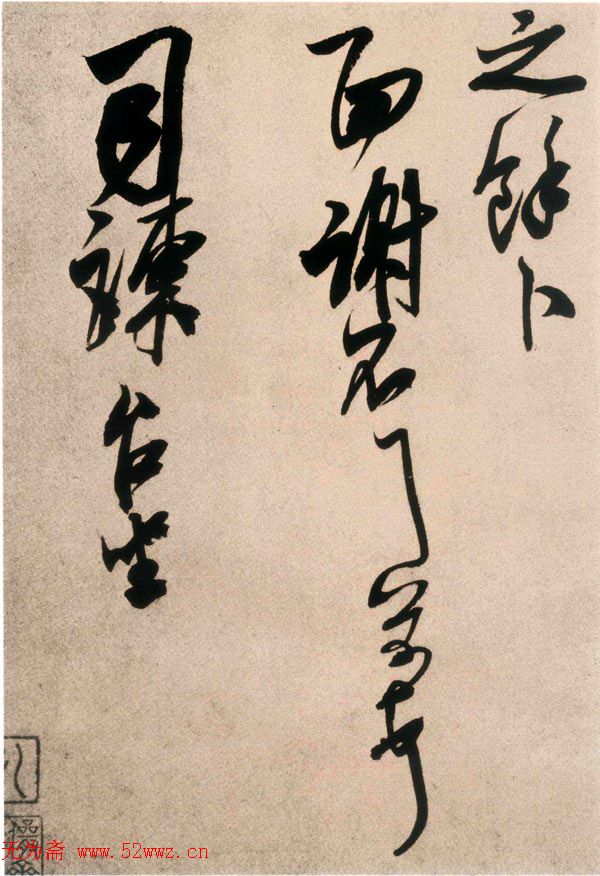 之餘卜
面謝不
司諫台坐
无为斋 www.52wwz.cn